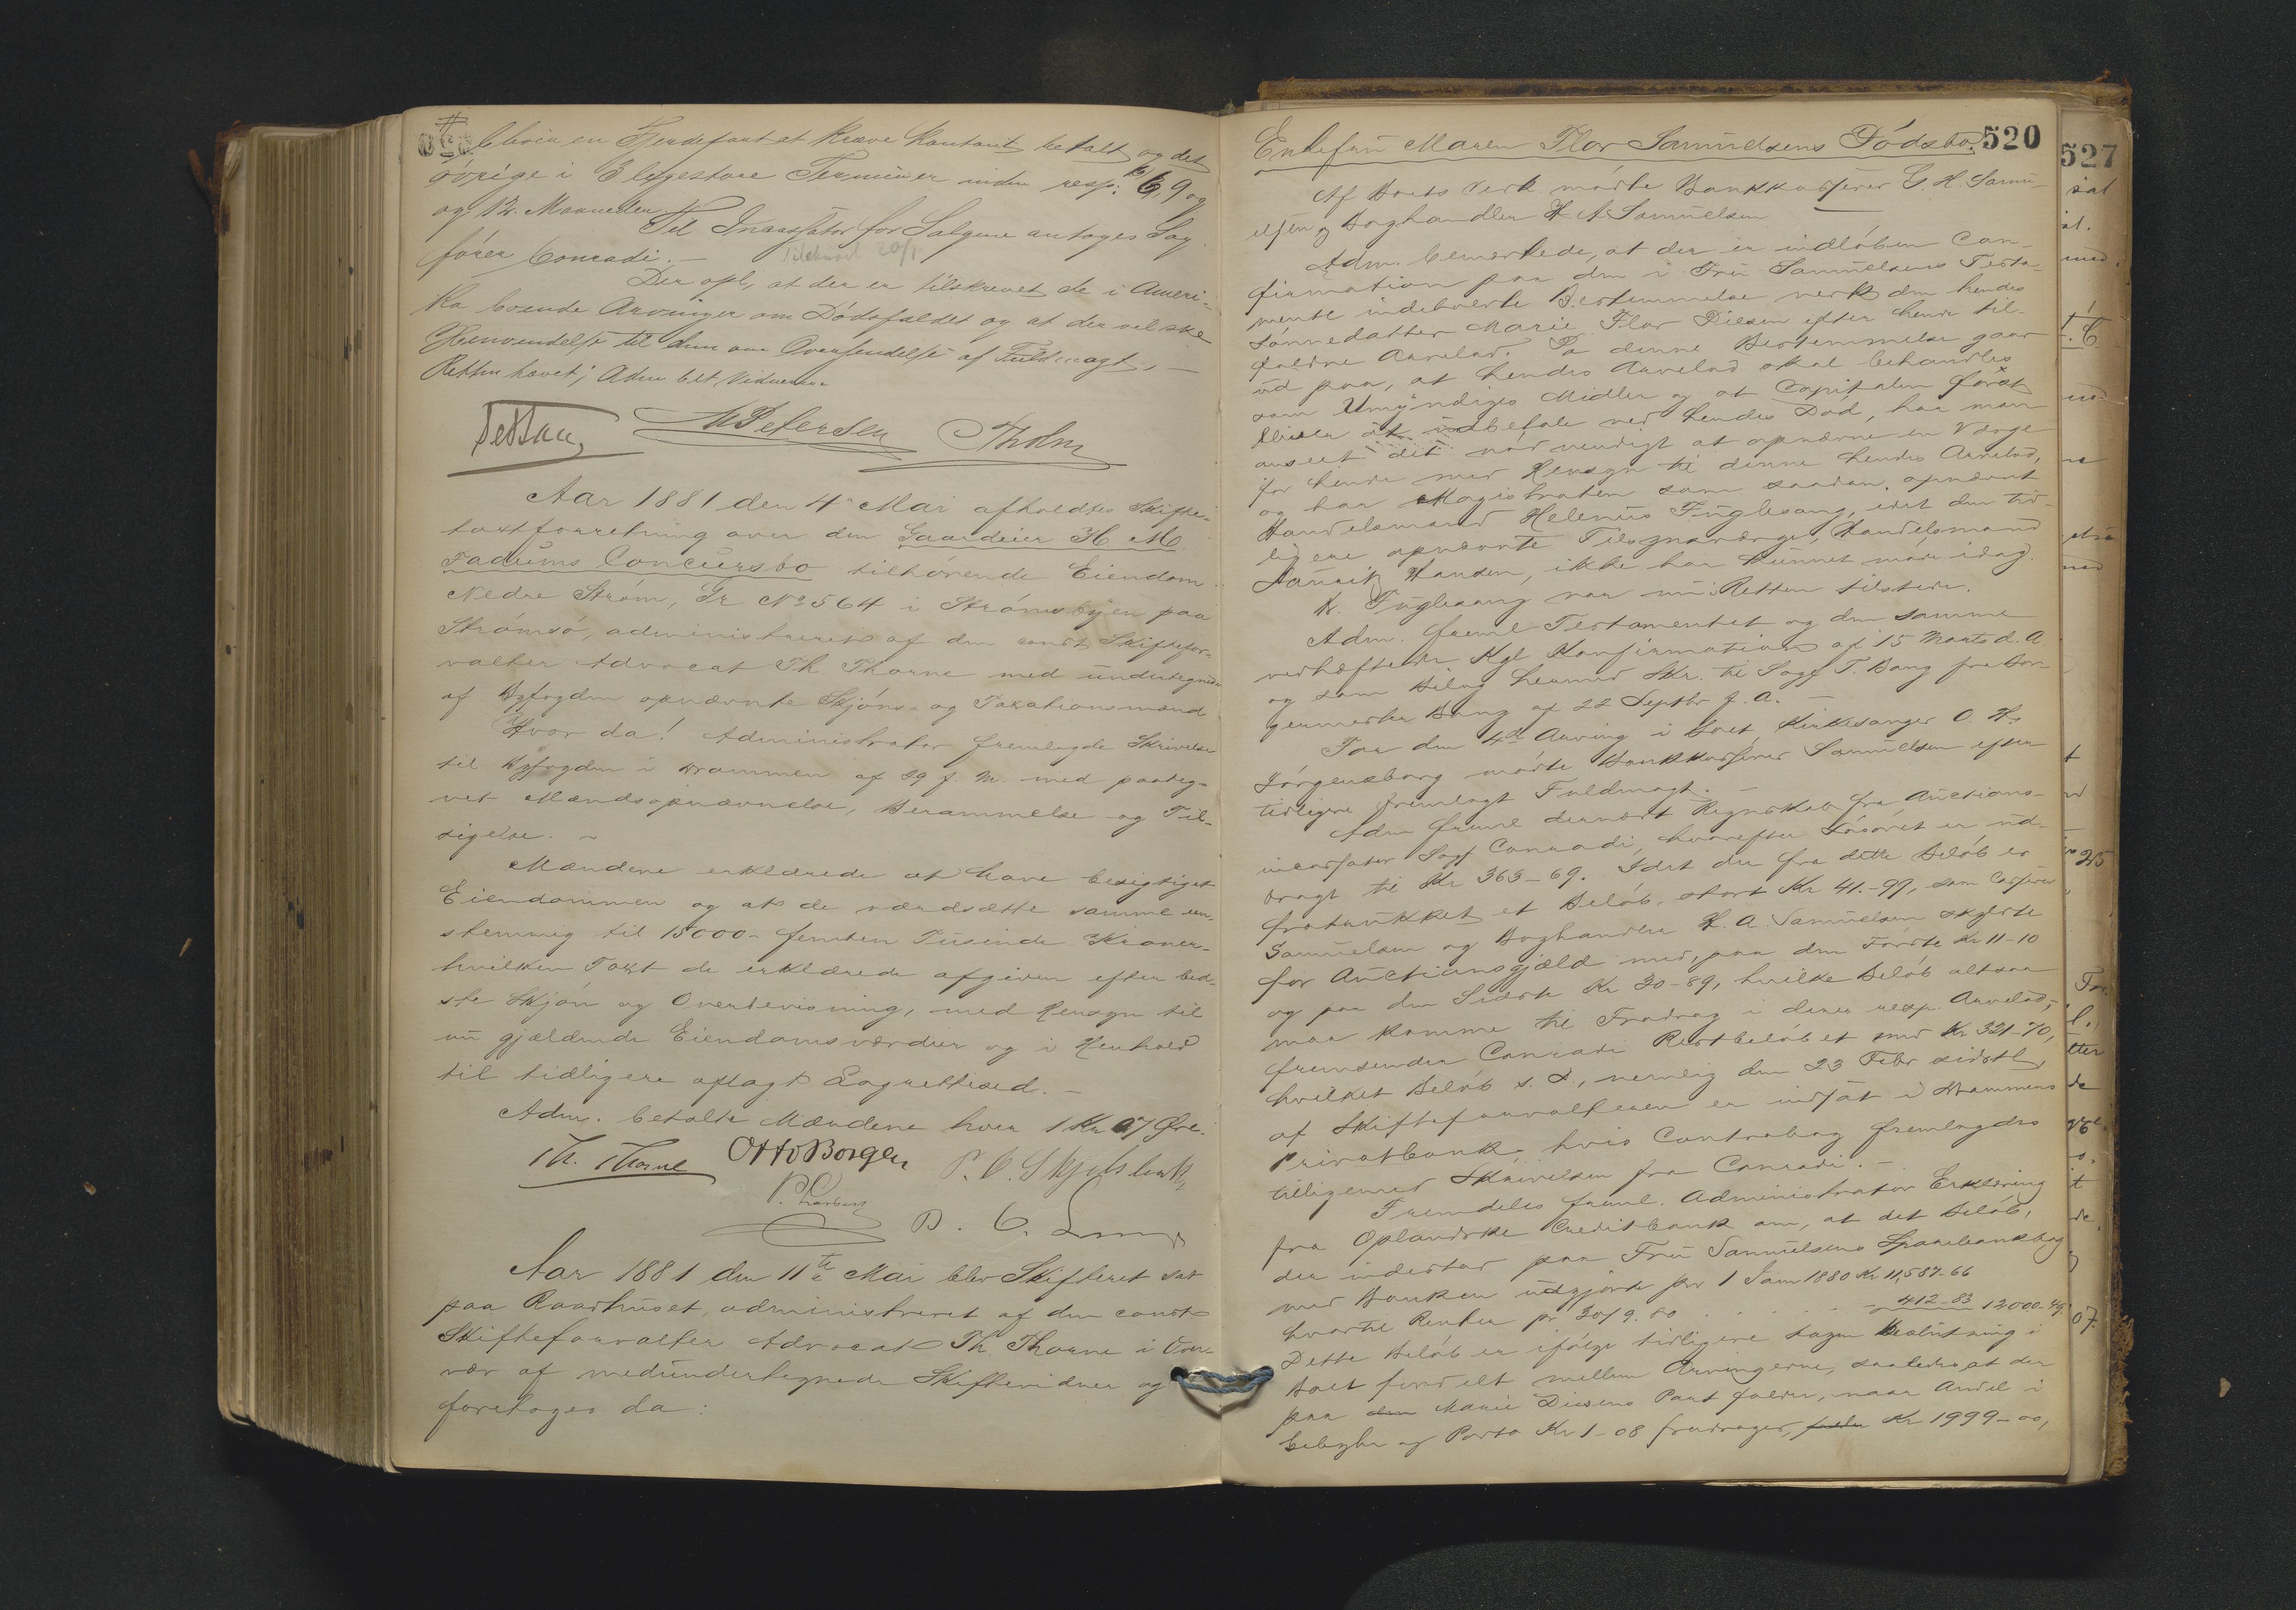 bliver en Fjerdepart at kræve kontant betalt og det
övrige i 3 ligestore Terminer inden resp. 6, 9 og
og 12 Maaneder
Til Incassator for Salgene antoges Sag-
förer Conradi. –
Tilskrivet 20/1
Der opl, at der er tilskrevet de i Ameri-
ka boende Arvinger om Dödsfaldet og at der vil ske
Henvendelse til dem om Oversendelse af Fuldmagt, –
Retten hævet; Adm bet Vidnerne
M Petersen Tholm
Aar 1881 den 4de Mai afholdtes Skifte-
taxtforretning over den Gaardeier H. M.
Fadums Concursbo tilhörende Eiendom
Nedre Ström, Gr No 564 i Strömsbyen paa
Strömsö, administreret af den const Skiftefor-
valter Advocat Th Thorne med undertegnede
af Byfogden opnævnte Skjöns- og Taxationsmænd
Hvor da! Administrator fremlagde Skrivelse
til Byfogden i Drammen af 29 f. M. med paateg-
net Mændsopnævnelse, Berammelse og Til-
sigelse. –
Mændene erklærede at have besigtiget
Eiendommen og at de værdsætte samme een-
stemmig til 15000 – femten Tusinde Kroner –
hvilken Taxt de erklærede afgiven efter bed-
ste Skjön og Overbevisning, med Hensyn til
nu gjældende Eiendomsværdier og i Henhold
til tidligere aflagt Lagrettesed. –
Adm. betalte Mændene hver 1 Kr 07 Øre.
Th. Thorne Otto Borgen P. C.
P.
Aar 1881 den 11te Mai blev Skifteret sat
paa Raadhuset, administreret af den const
Skifteforvalter Advocat Th. Thorne i Over-
vær af medundertegnede Skiftevidner og
foretoges da:
Enkefru Maren Flor Samuelsens Dödsbo. 520
Af Boets Vedk. mödte Bankkasserer G. H. Samu-
elsen og Boghandler H. A Samuelsen
Adm. bemærkede, at der er indlöben Con-
firmation paa den i Fru Samuelsens Testa-
mente indeholdte Bestemmelse vedk den hendes
Sönnedatter Marie Flor Diesen efter hende til-
faldne Arvelod. Da denne Bestemmelse gaar
ud paa, at hendes Arvelod skal behandles
som Umyndiges Midler og at Capitalen först
bliver at udbetale ved hendes Död, har man
anseet det nödvendigt at opnævne en Værge
for hende med Hensyn til denne hendes Arvelod,
og har Magistraten som saadan opnævnt
Handelsmand Helenus Fuglesang, idet den tid-
ligere opnævnte Tilsynsværge, Handelsmand
Hansen, ikke har kunnet möde idag.
Hr. Fuglesang var nu i Retten tilstede.
Adm. freml Testamentet og den samme
vedhæftede Kgl Konfirmation af 15 Marts d. A
og som Bilag hermed Skr. til Sagf T. Bang fra Bor-
germester Bang af 22 Septbr f. A. –
For den 4de Arving i Boet, Kirkesanger O. H.
Jörgensborg mödte Bankkasserer Samuelsen efter
tidligere fremlagt Fuldmagt. –
Adm freml dernæst Regnskab fra Auctions-
incassator Sagf Conradi, hvorefter Lösöret er ud-
bragt til Kr 363-69. Idet der fra dette Belöb er
fratrukket et Belöb, stort Kr 41.-99, som Casserer
Samuelsen og Boghandler H. A. Samuelsen skyldte
for Auctionsgjæld med, paa den Förste Kr 11-10
og paa den Sidste Kr 30-89, hvilke Belöb altsaa
maa komme til Fradrag i deres resp. Arvelod,
fremsender Conradi Restbelöbet med Kr 321-70,
hvilket Belöb s. D., nemlig den 23 Febr sidstl,
af Skifteforvalteren er indsat i Drammens
Privatbank, hvis Contrabog fremlagdes
tilligemed Skrivelsen fra Conradi. –
Fremdeles freml. Administrator Erklæring
fra Oplandske Creditbank om, at det Belöb,
der indestod paa Fru Samuelsens Sparebankbog
med Banken udgjorde pr 1 Janr 1880 Kr 11,587-66
hvortil Renter pr 30/9. 80 . . . . - 412-83 12000-49.
Dette Belöb er ifölge tidligere tagen Beslutning i
Boet fordelt mellem Arvingerne, saaledes at der
paa den Marie Diesens Part falder, naar Andel i
Gebyhr og Porto Kr 1-08 fradrages, falder Kr 1999-00,
527
25
07.